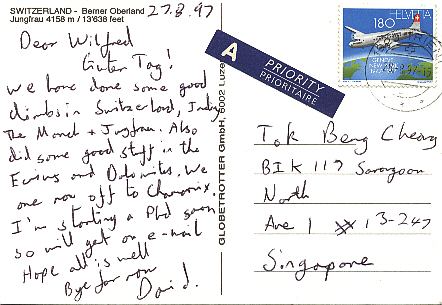 SWITZERLAND - Berner Oberland
Jungfrau 4158 m / 13'638 feet
27.8.97
Dear Wilfred
Guten Tag!
We have done some good
climbs in Switzerland, Inding
The Monch + Jungfrau. Also
did some good stuff in the
Ecrins and Dolomites. We
are now off to Chamonix.
I'm starting a Phd soon
so will get on e-mail
Hope all is well
Bye for now
David.
GLOBETROTTER GmbH, 6002 Luze
A
PRIORITY
PRIORITAIRE
HELVETIA
180
GENEVE
NEW YORK
Tok Beng Cheong
BIK 117 Serangoon
North
Ave 1 13-247
Singapore